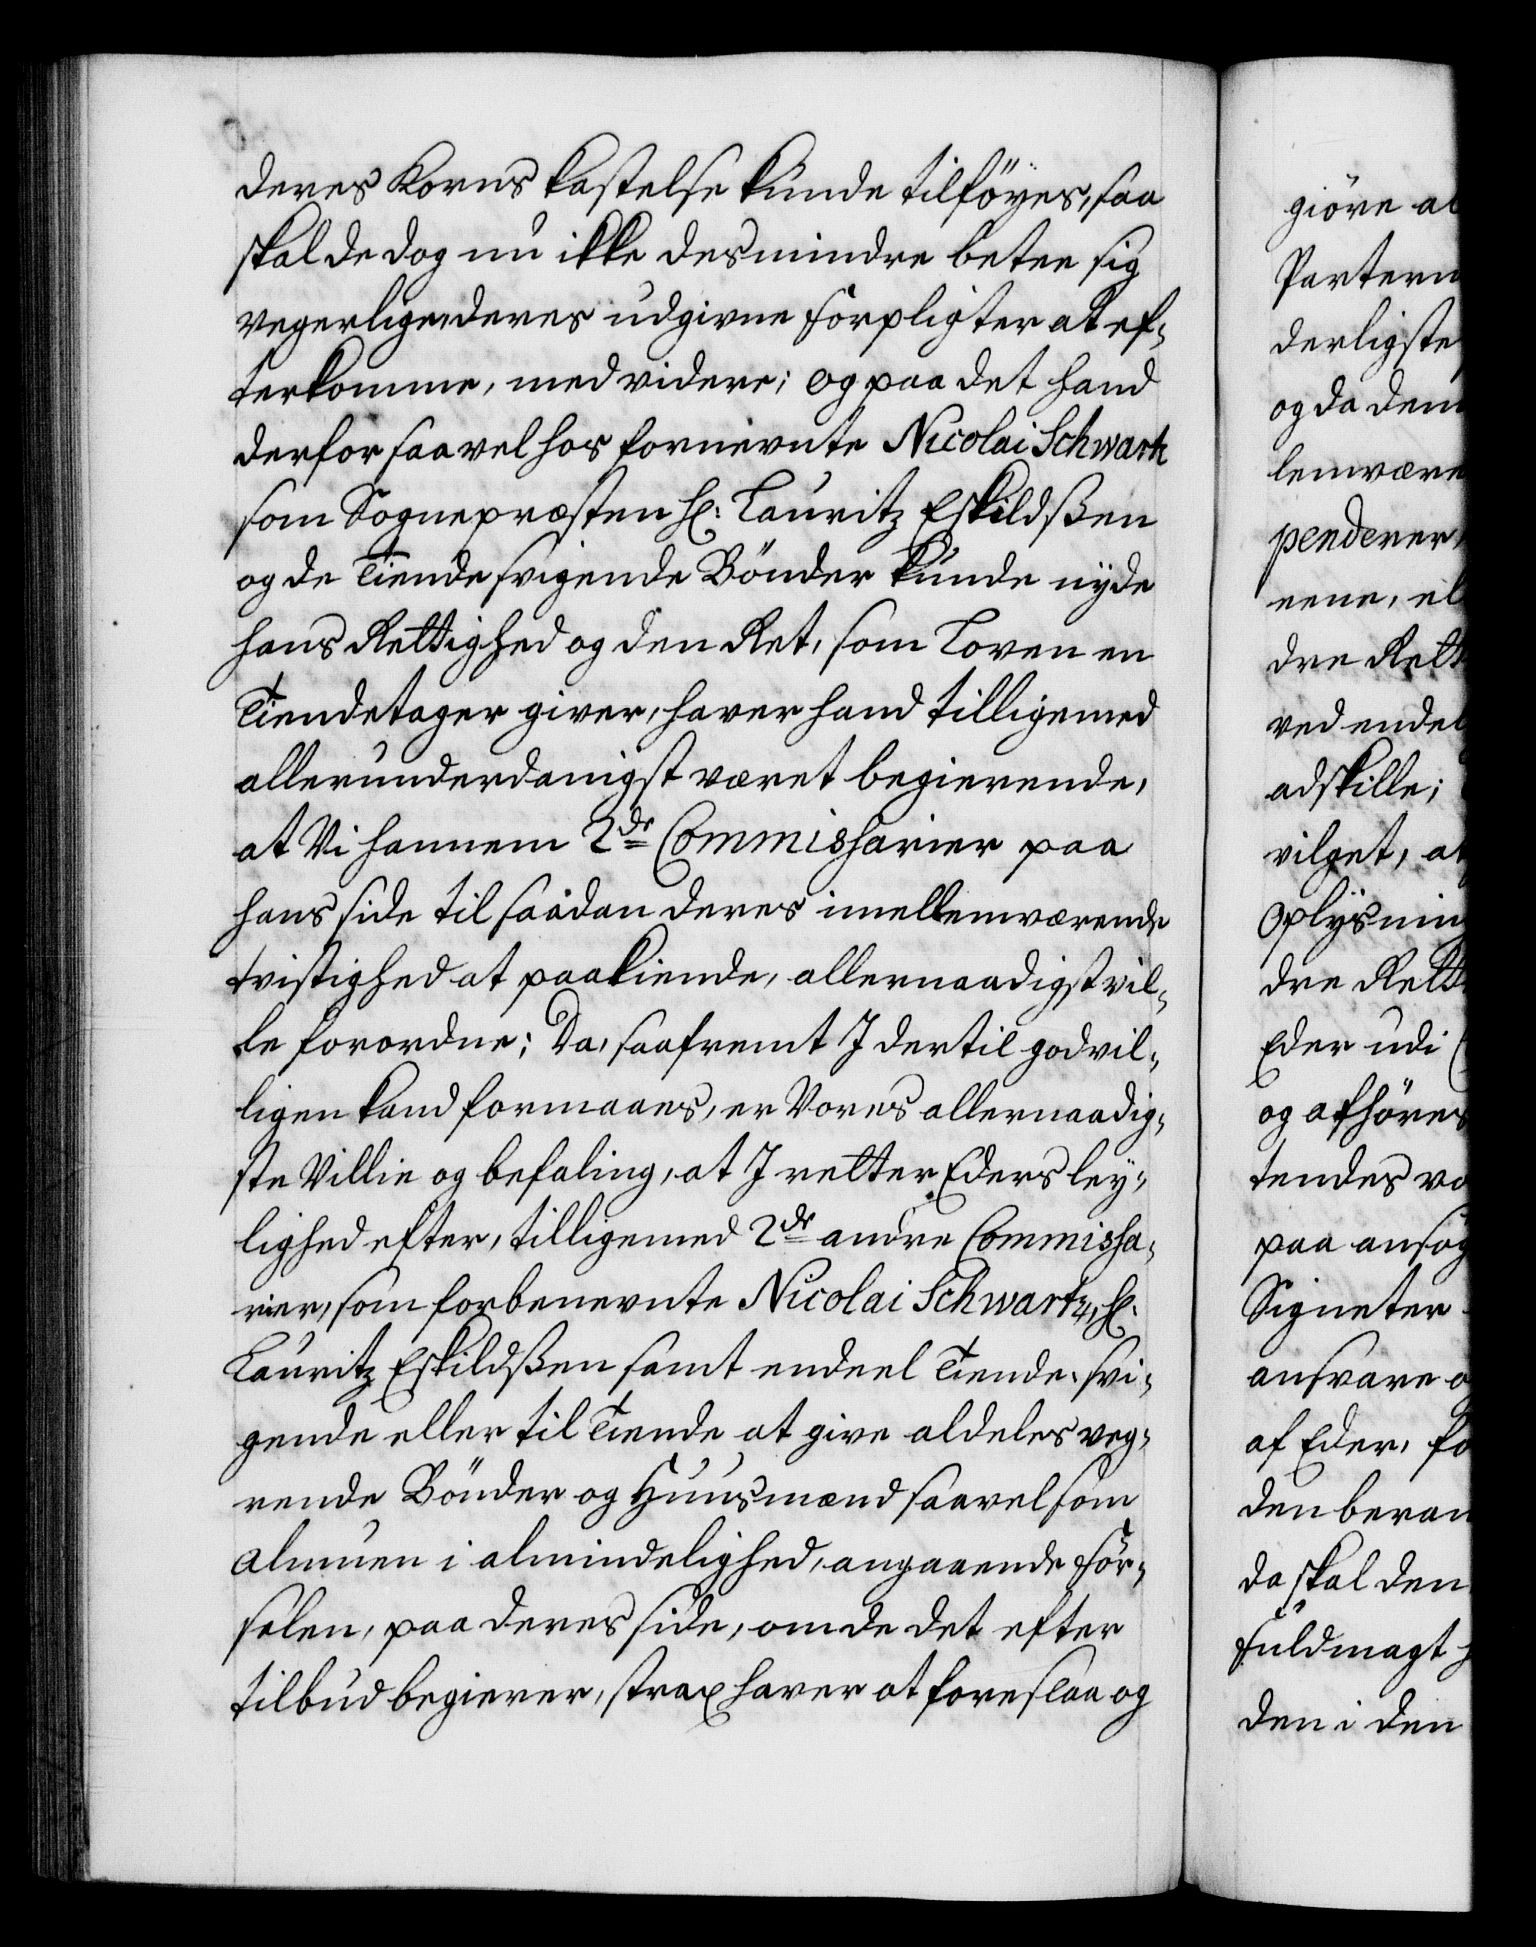 deres Korns kastelse kunde tilföyes, saa
skal de dog nu ikke desmindre betee sig
vegerlige, deres udgivne forpligter at ef-
terkomme, med videre; og paa det hand
derfor saavel hos fornevnte Nicolai Schwartz
som Sognepræsten Hr: Lauritz Eskildßen
og de Tiende svigende Bönder kunde nyde
hans Rettighed og den Ret, som Loven en
Tiendetager giver, haver hand tilligemed
allerunderdanigst været begierende,
at Vi hannem 2de Commissarier paa
hans side til saadan deres imellemværende
tvistighed at paakiende, allernaadigst vil-
le forordne; Da, saafremt I dertil godvil-
ligen kand formaaes, er Vores allernaadig-
ste Villie og befaling, at I retter Eders ley-
lighed efter, tilligemed 2de andre Commissa-
rier, som forbenevnte Nicolai Schwartz, Hr:
Lauritz Eskildßen samt endeel Tiende-svi-
gende eller til Tiende at give aldeles veg-
rende Bönder og Huusmænd saavelsom
Almuen i almindelighed, angaaende för-
selen, paa deres side, om de det efter
tilbud begierer, strax haver at foreslaa og
giöre al
Partern
derligste
og da dem
lemvære
penderer
eene, el
dre Rett
ved endel
adskille;
vilget, at
Oplysnin
dre Rett
Eder udi
og afhöres
tendes vo
paa ansög
Signeter
ansvare o
af Eder, fo
den beram
da skal den
Fuldmagt h
den i den